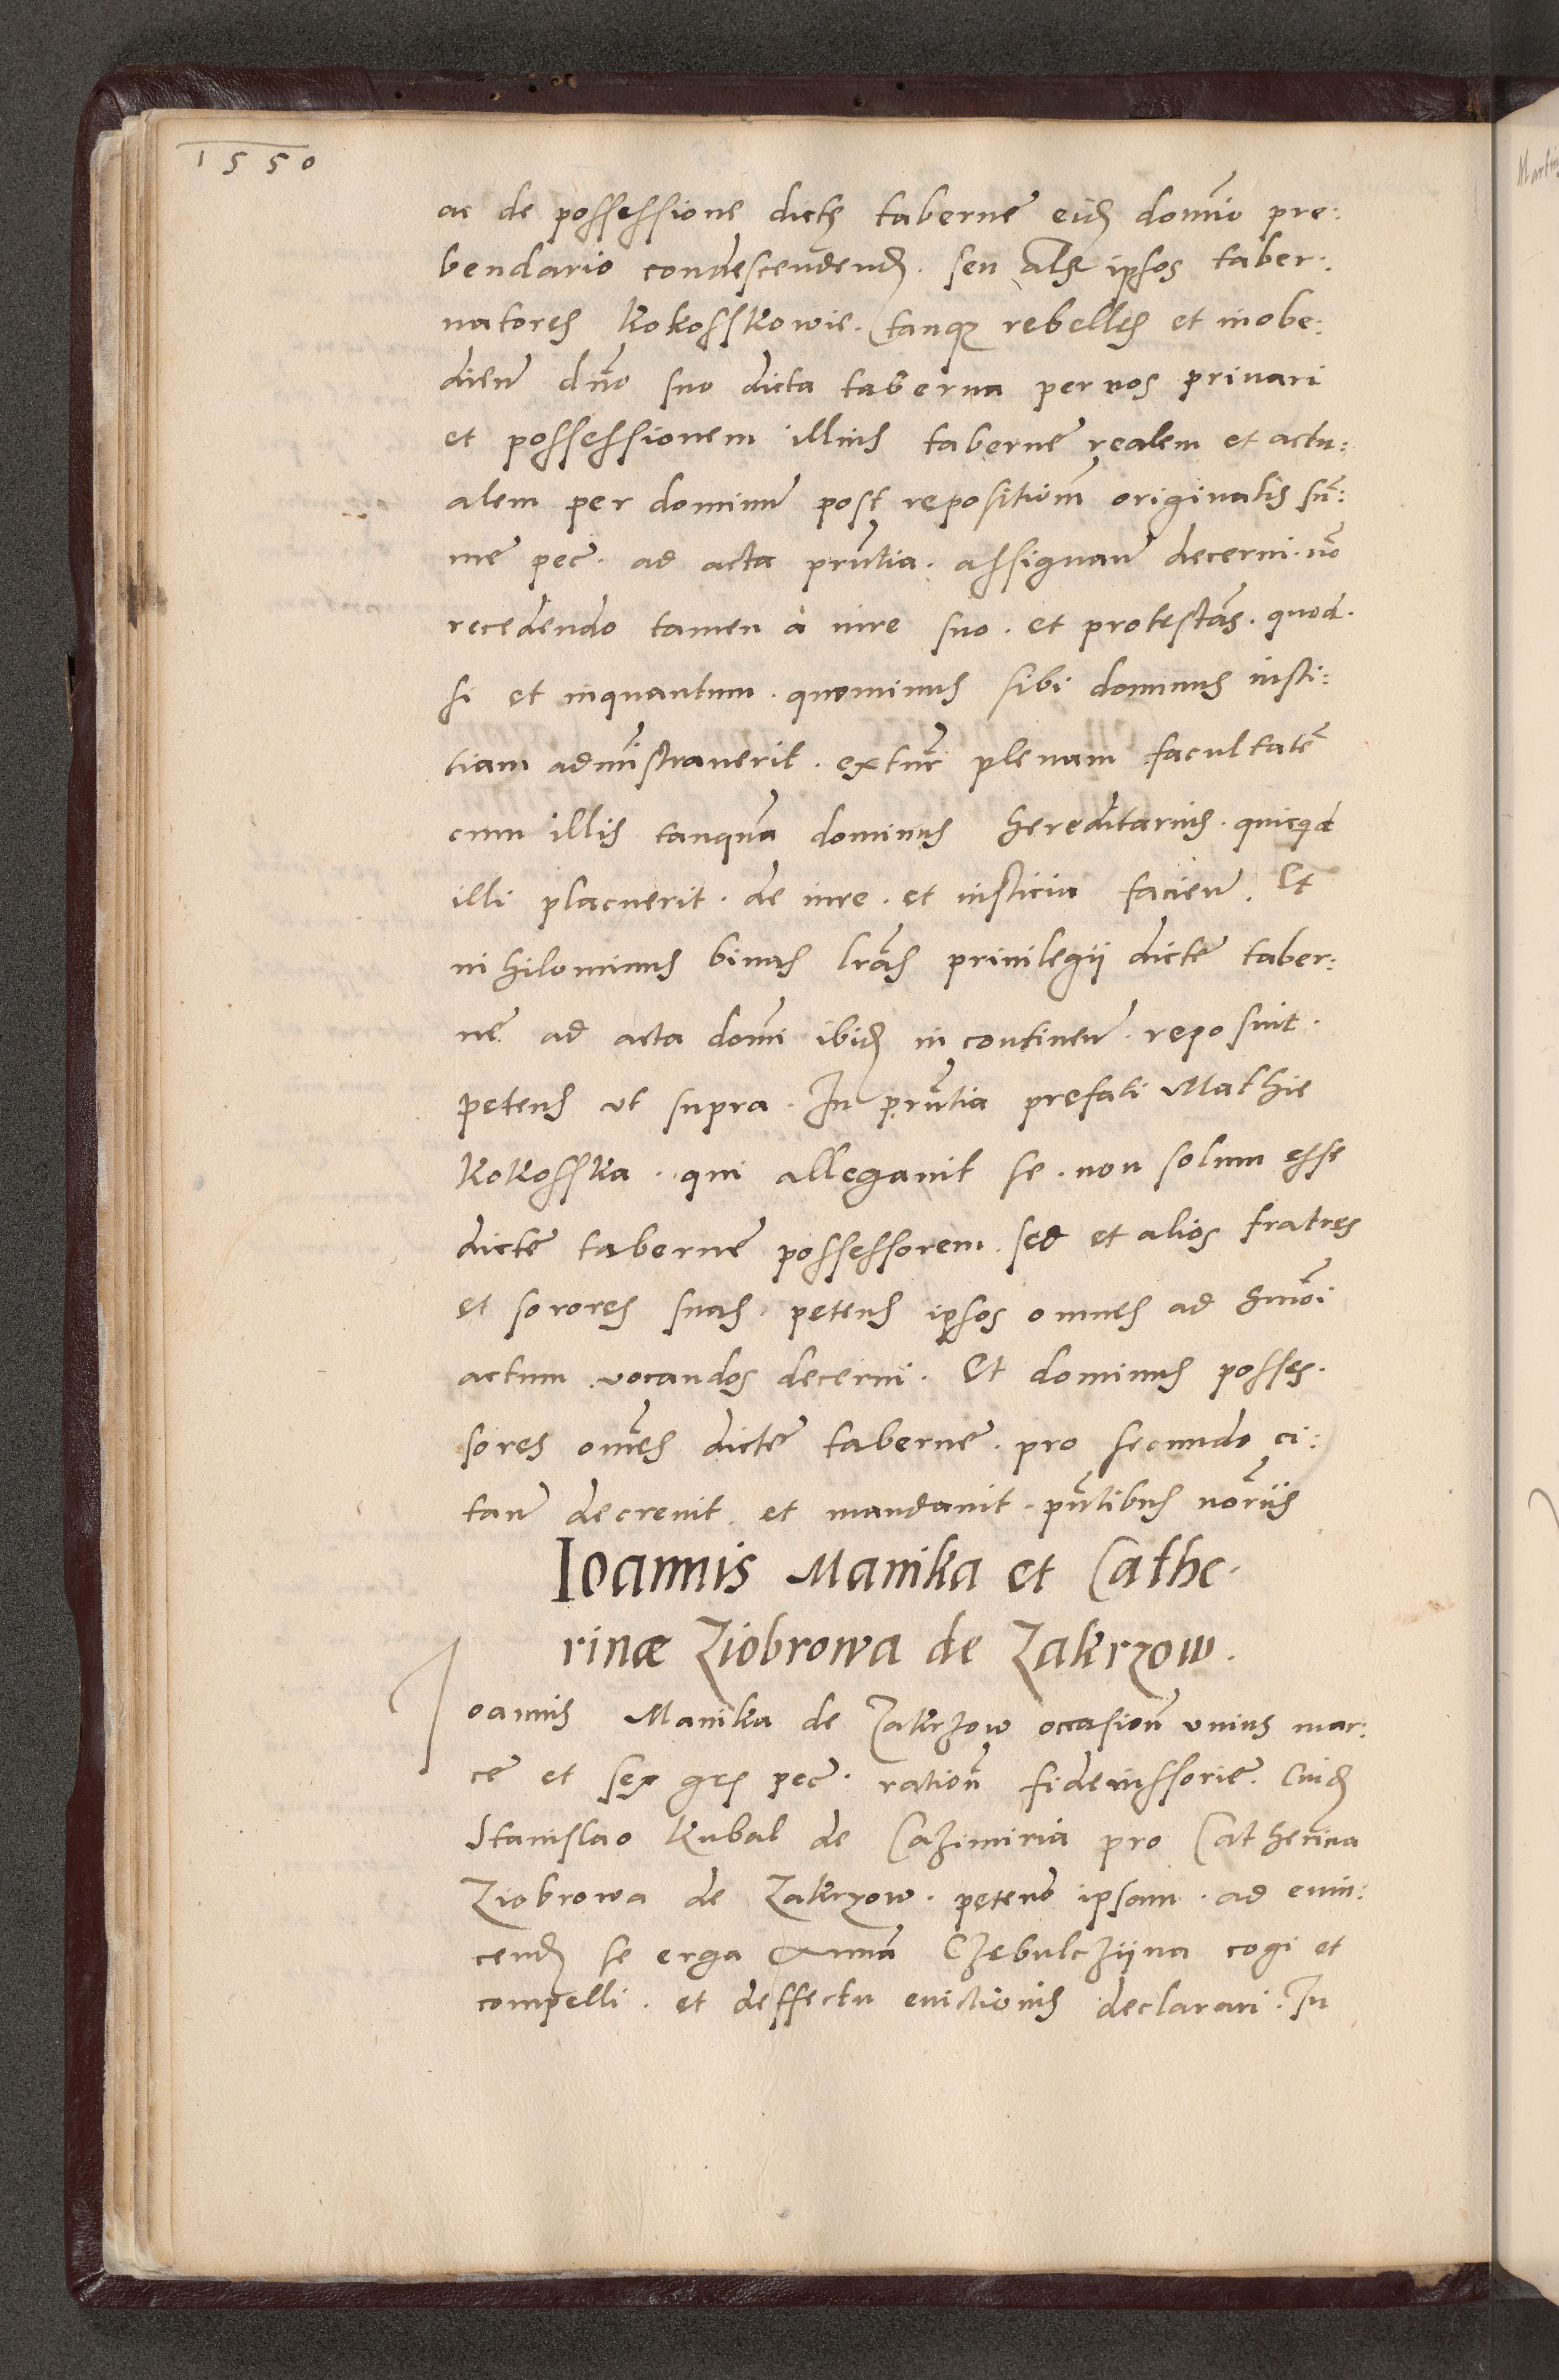 1550
ac de possessione dicte taberne eid domĩo pre:
bendario condescendend. seu als ipsos taber:
natores Kokosskowie. tanqz rebelles et inobe:
dien dño suo dicta taberna per nos priuari
et possessionem illius taberne realem et actu:
alem per dominũ post repositiom̃ originalis sũ:
me pec. ad acta pñtia. assignan decerni. nõ
recedendo tamen à iure suo. et protestãs. quod.
si et inquantum. quominus sibi dominus iusti:
tiam admĩstrauerit. extũc plenam facultatẽ
cum illis tanquã dominus hereditarius. quicqd
illi placuerit. de iure. et iusticia facien. Et
nihilominus binas lrãs priuilegii dicte taber:
ne ad acta domi ibid in continen. reposuit.
petens vt supra. In prñtia prefati Mathie
Kokosska. qui allegauit se. non solum esse
dicte taberne possessorem. sed et alios fratres
et sorores suas. petens ipsos omnes ad hmõi
actum vocandos decerni. Et dominus posses.
sores omẽs dicte taberne. pro secundo ci:
tan decreuit. et mandauit. pñtibus norĩis
Ioannis Manika et Cathe.
rinæ Ziobrowa de Zakrzow.
Ioannis Manika de Zakrzow occasiom̃ vnius mar:
ce et sex grs pec. ratiom̃ fideiussorie. Cuid
Stanislao Kubal de Cazimiria pro Catherina
Ziobrowa de Zakrzow. petens ipsam. ad euin:
cend se erga Annã Czebulcziina cogi et
compelli. et deffectu euictionis declarari. In